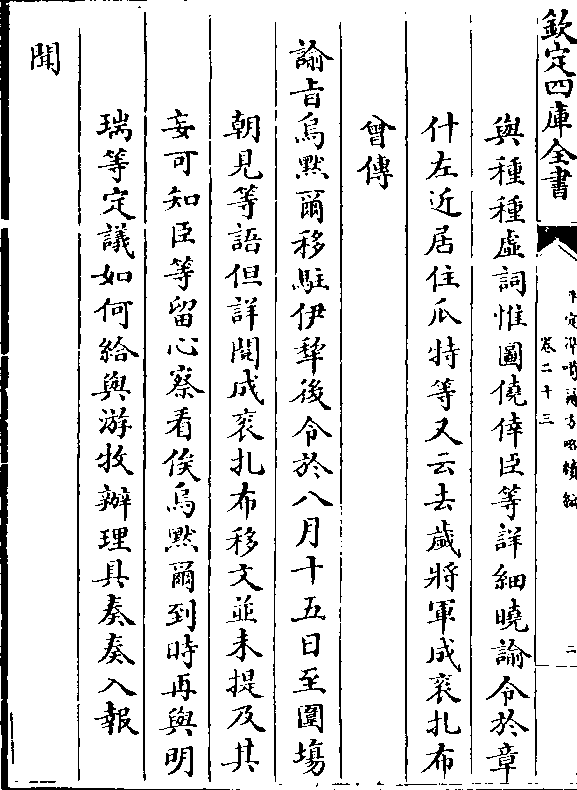 欽定四庫全書
平定凖噶爾方略續編
卷二十三
二
與種種虛詞惟圖僥倖臣等詳細曉諭令於章
什左近居住瓜特等又云去歲將軍成衮扎布
曾傳
諭㫖烏默爾移駐伊犂後令於八月十五日至圍塲
朝見等語但詳閱成衮扎布移文並未提及其
妄可知臣等留心察看俟烏默爾到時再與明
瑞等定議如何給與游牧辦理具奏奏入報
聞